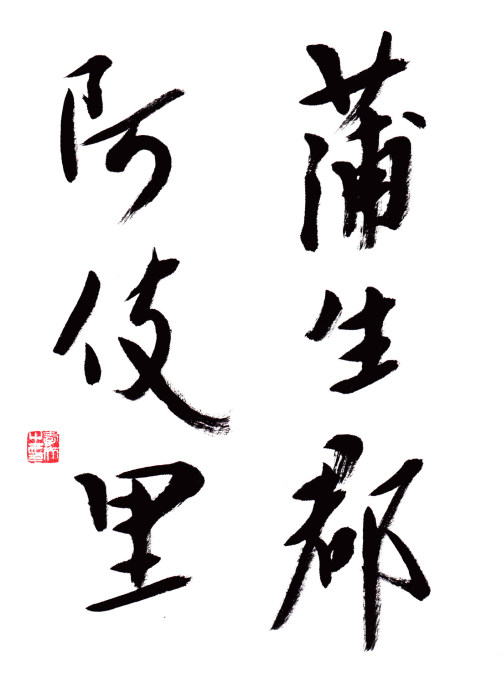 蒲生郡
阿伎里